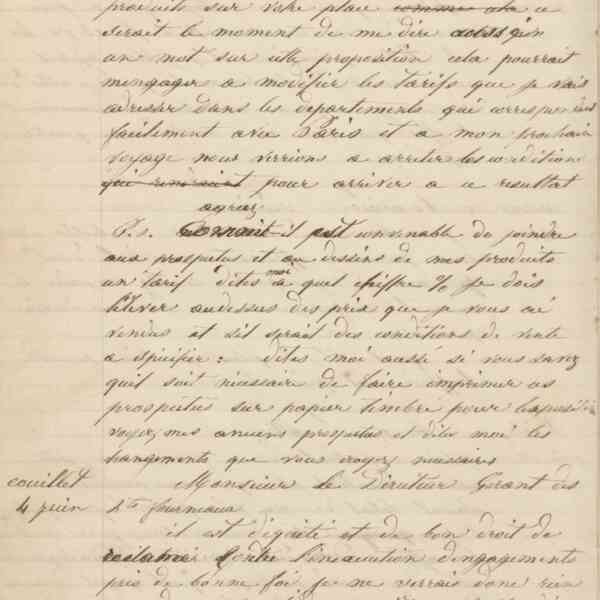 produits sur votre place comme cela ce
serait le moment de me dire aussi qu'en
un mot sur cette proposition cela pourrait
m'engager a modifier les tarifs que je vais
adresser dans les departements qui correspondent
facilement avec Paris et a mon prochain
voyage nous verrions a arreter les conditions
qui seraient pour arriver a ce resultat
agréz
P.s. il est convenable de joindre
aux prospectus et au dessins de mes produits
un tarif dites moi a quel chiffre % je dois
l'élever audessus des prix que je vous ai
vendus et s'il serait des conditions de vente
a spécifier : dites moi aussi si vous savez
qu'il soit nécessaire de faire imprimer ces
prospectus sur papier timbré pour
voyez mes anciens prospectus et dites moi les
changements que vous croyez nécessaires
couillet Monsieur le Directeur Gerant des
4 juin hts fourneaux
il est d'équité et de bon droit de
reclamer contre l'inexecution d'engagements
pris de bonne foi je ne verrais donc rien